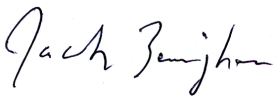 Jack Bermingham